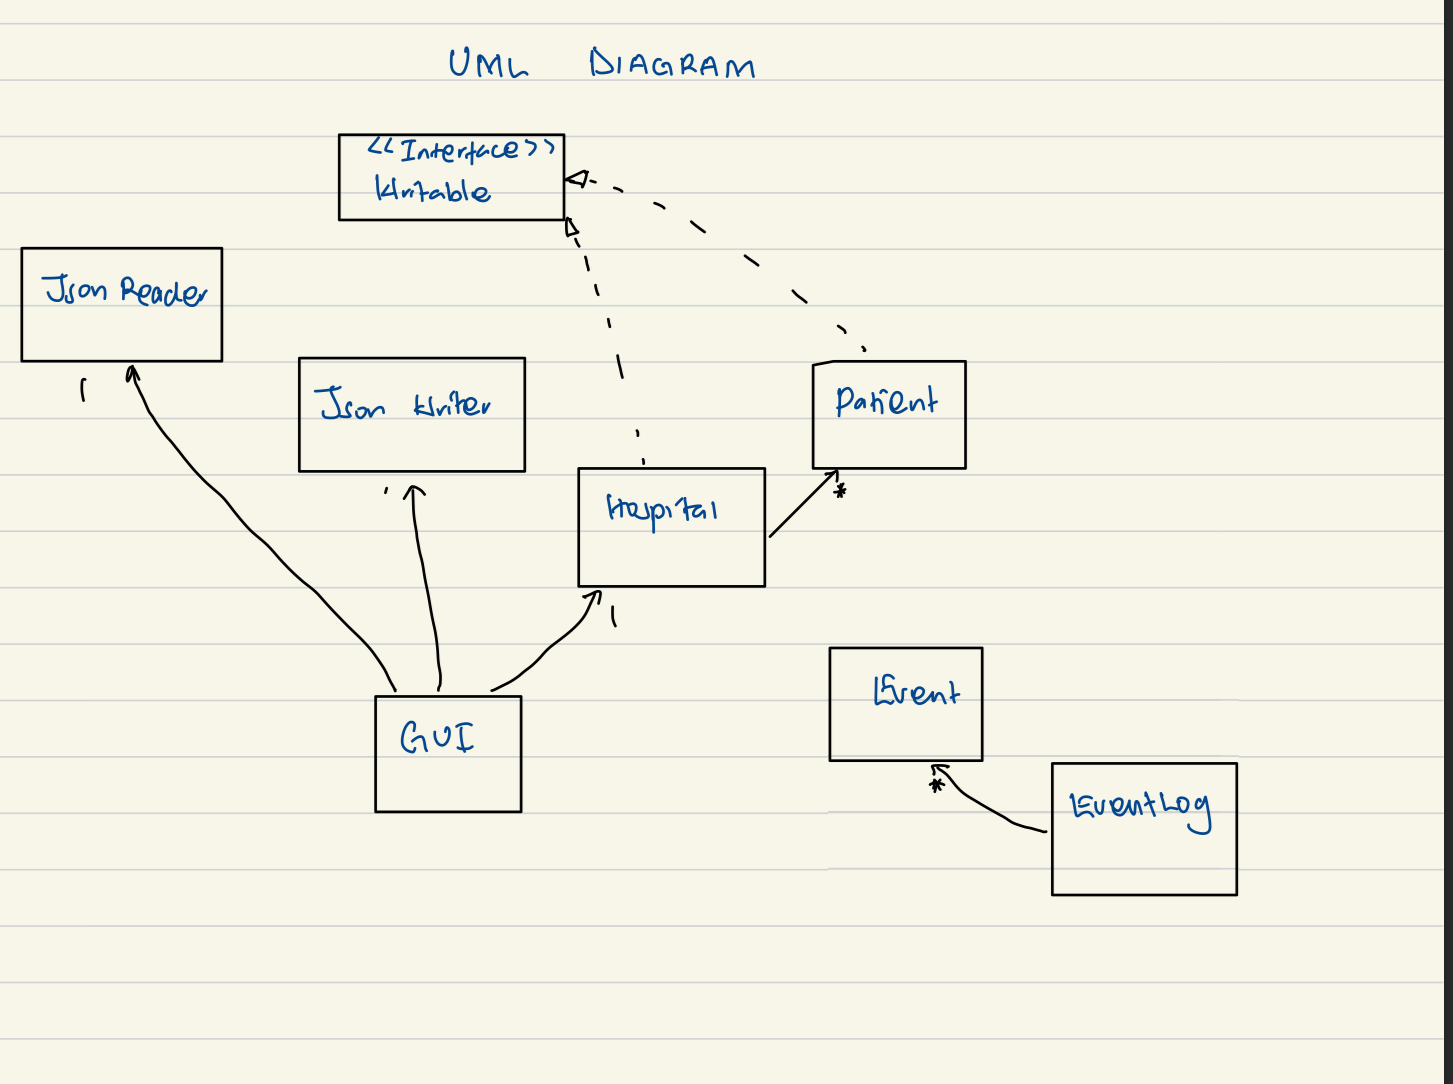 UML DIAGRAM
<<Interface>>
Writable
Json Reader
1
Json Writer
1
Patient
*
Hospital
1
GUI
Event
*
EventLog